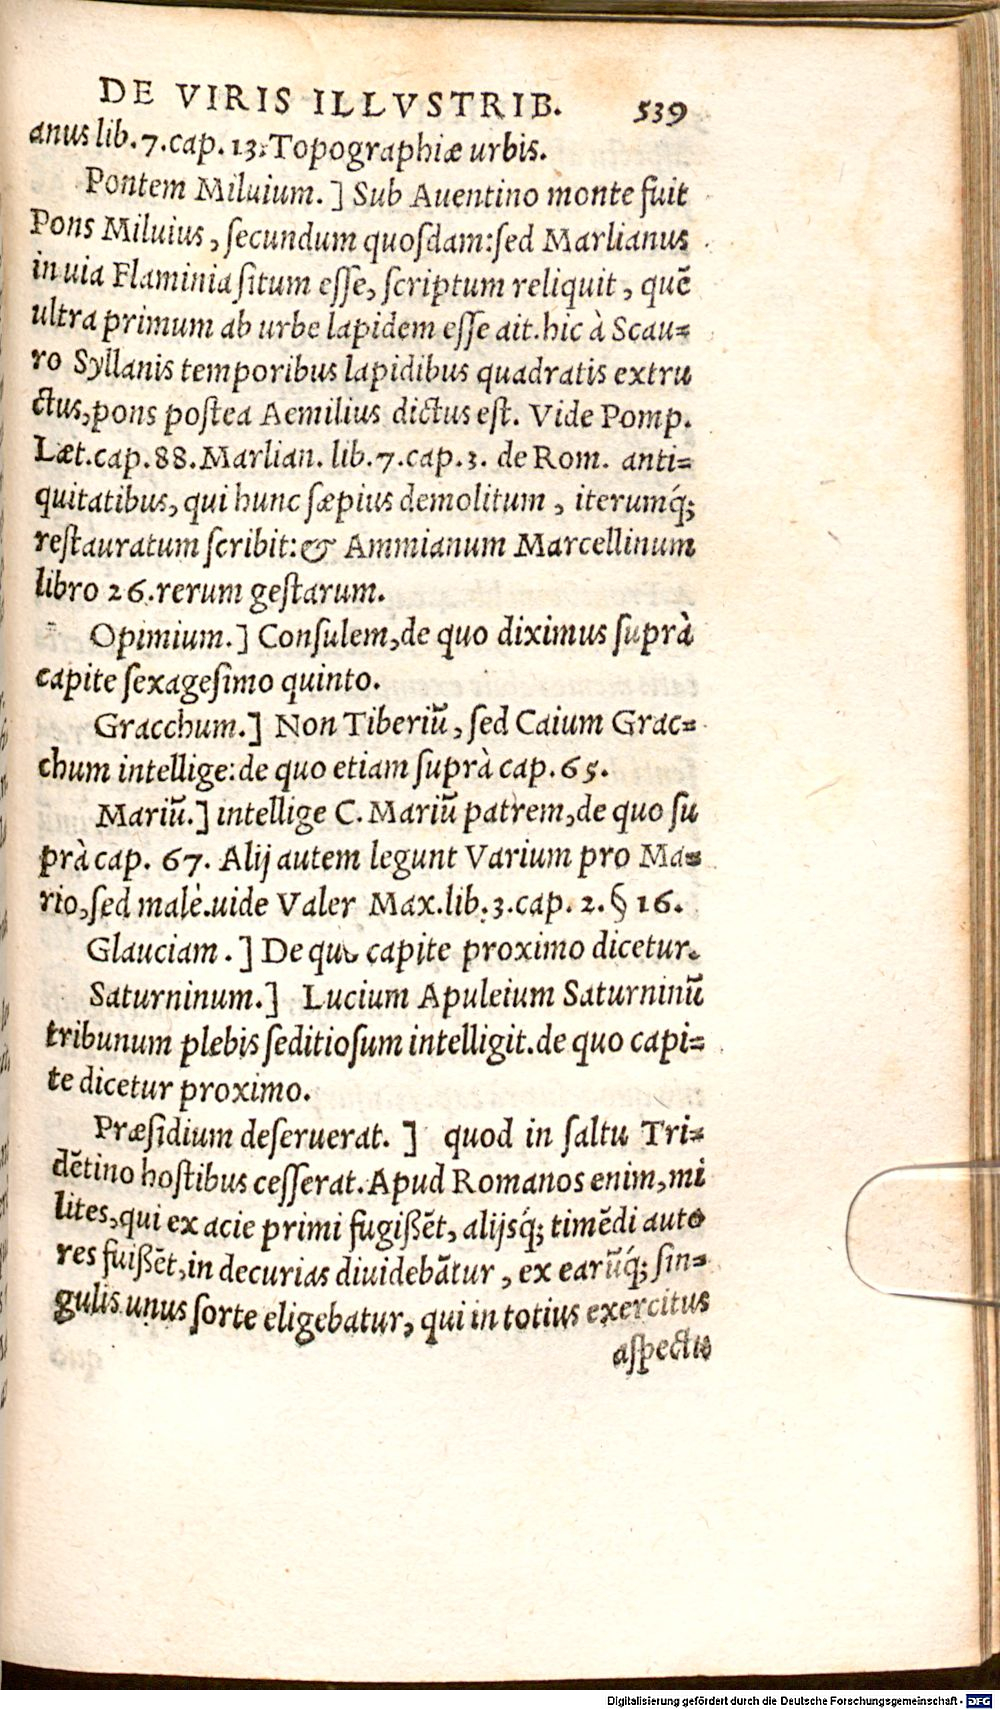 DE VIRIS ILLVSTRIB. 539
anus lib. 7. cap. 13. Topographiæ urbis.
Pontem Miluium.] Sub Auentino monte fuit
Pons Miluius, ſecundum quoſdam: ſed Marlianus
in uia Flaminia ſitum eſſe, ſcriptum reliquit, quē
ultra primum ab urbe lapidem eſſe ait. hic à Scau=
ro Syllanis temporibus lapidibus quadratis extru
ctus, pons poſtea Aemilius dictus eſt. Vide Pomp.
Læt. cap. 88. Marlian. lib. 7. cap. 3. de Rom. anti=
quitatibus, qui hunc ſæpius demolitum, iterumq́;
reſtauratum ſcribit: & Ammianum Marcellinum
libro 26. rerum geſtarum.
Opimium.] Conſulem, de quo diximus ſuprà
capite ſexageſimo quinto.
Gracchum.] Non Tiberiū, ſed Caium Grac=
chum intellige: de quo etiam ſuprà cap. 65.
Mariū.] intellige C. Mariū patrem, de quo ſu
prà cap. 67. Alij autem legunt Varium pro Ma=
rio, ſed malè. uide Valer Max. lib. 3. cap. 2. § 16.
Glauciam.] De quo capite proximo dicetur.
Saturninum.] Lucium Apuleium Saturninū
tribunum plebis ſeditioſum intelligit. de quo capi=
te dicetur proximo.
Præſidium deſeruerat.] quod in ſaltu Tri=
dētino hoſtibus ceſſerat. Apud Romanos enim, mi
lites, qui ex acie primi fugißēt, alijsq́; timēdi auto
res fuißēt, in decurias diuidebātur, ex earūq́; ſin=
gulis unus ſorte eligebatur, qui in totius exercitus
aſpectu
Digitalisierung gefördert durch die Deutsche Forschungsgemeinschaft - DFG